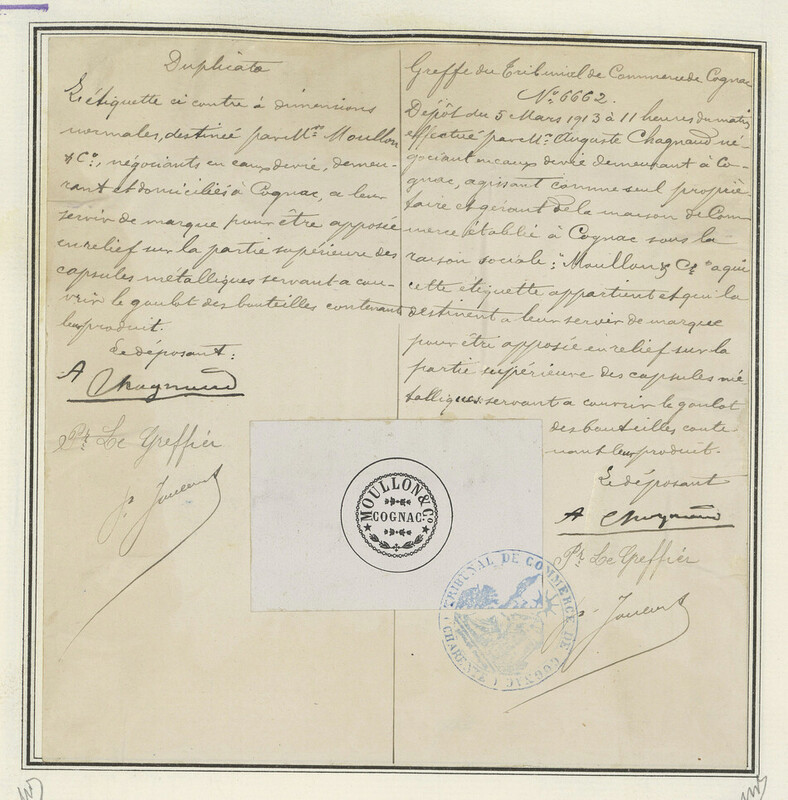 Duplicata
L'étiquette ci contre à dimensions
normales, destinée par Mrs Moullon
& Co, négociants en eaux de vie, demeu-
rant et domiciliés à Cognac, a leur
servir de marque pour être apposée
en relief sur la partie supérieure des
capsules métalliques servant a cou-
vrir le goulot des bouteilles contenant
leur produit.
Le déposant:
A Chagnaud
Pr Le Greffier
Greffe du Tribunal de Commerce de Cognac
No 6662.
Dépôt du 5 Mars 1913 à 11 heures du matin
effectué par Mr Auguste Chagnaud né-
gociant en eaux de vie demeurant à Co-
gnac, agissant comme seul proprié
taire et gérant de la maison de Com
merce établie à Cognac sous la
raison sociale: "Moullon & Co" a qui
cette étiquette appartient et qui la
destinent a leur servir de marque
pour être apposée en relief sur la
partie supérieure des capsules mé-
talliques servant a couvrir le goulot
des bouteilles conte-
nant leur produit.
Le déposant
A Chagnaud
Pr Le Greffier
MOULLON & Co
COGNAC
TRIBUNAL DE COMMERCE DE COGNAC
CHARENTE